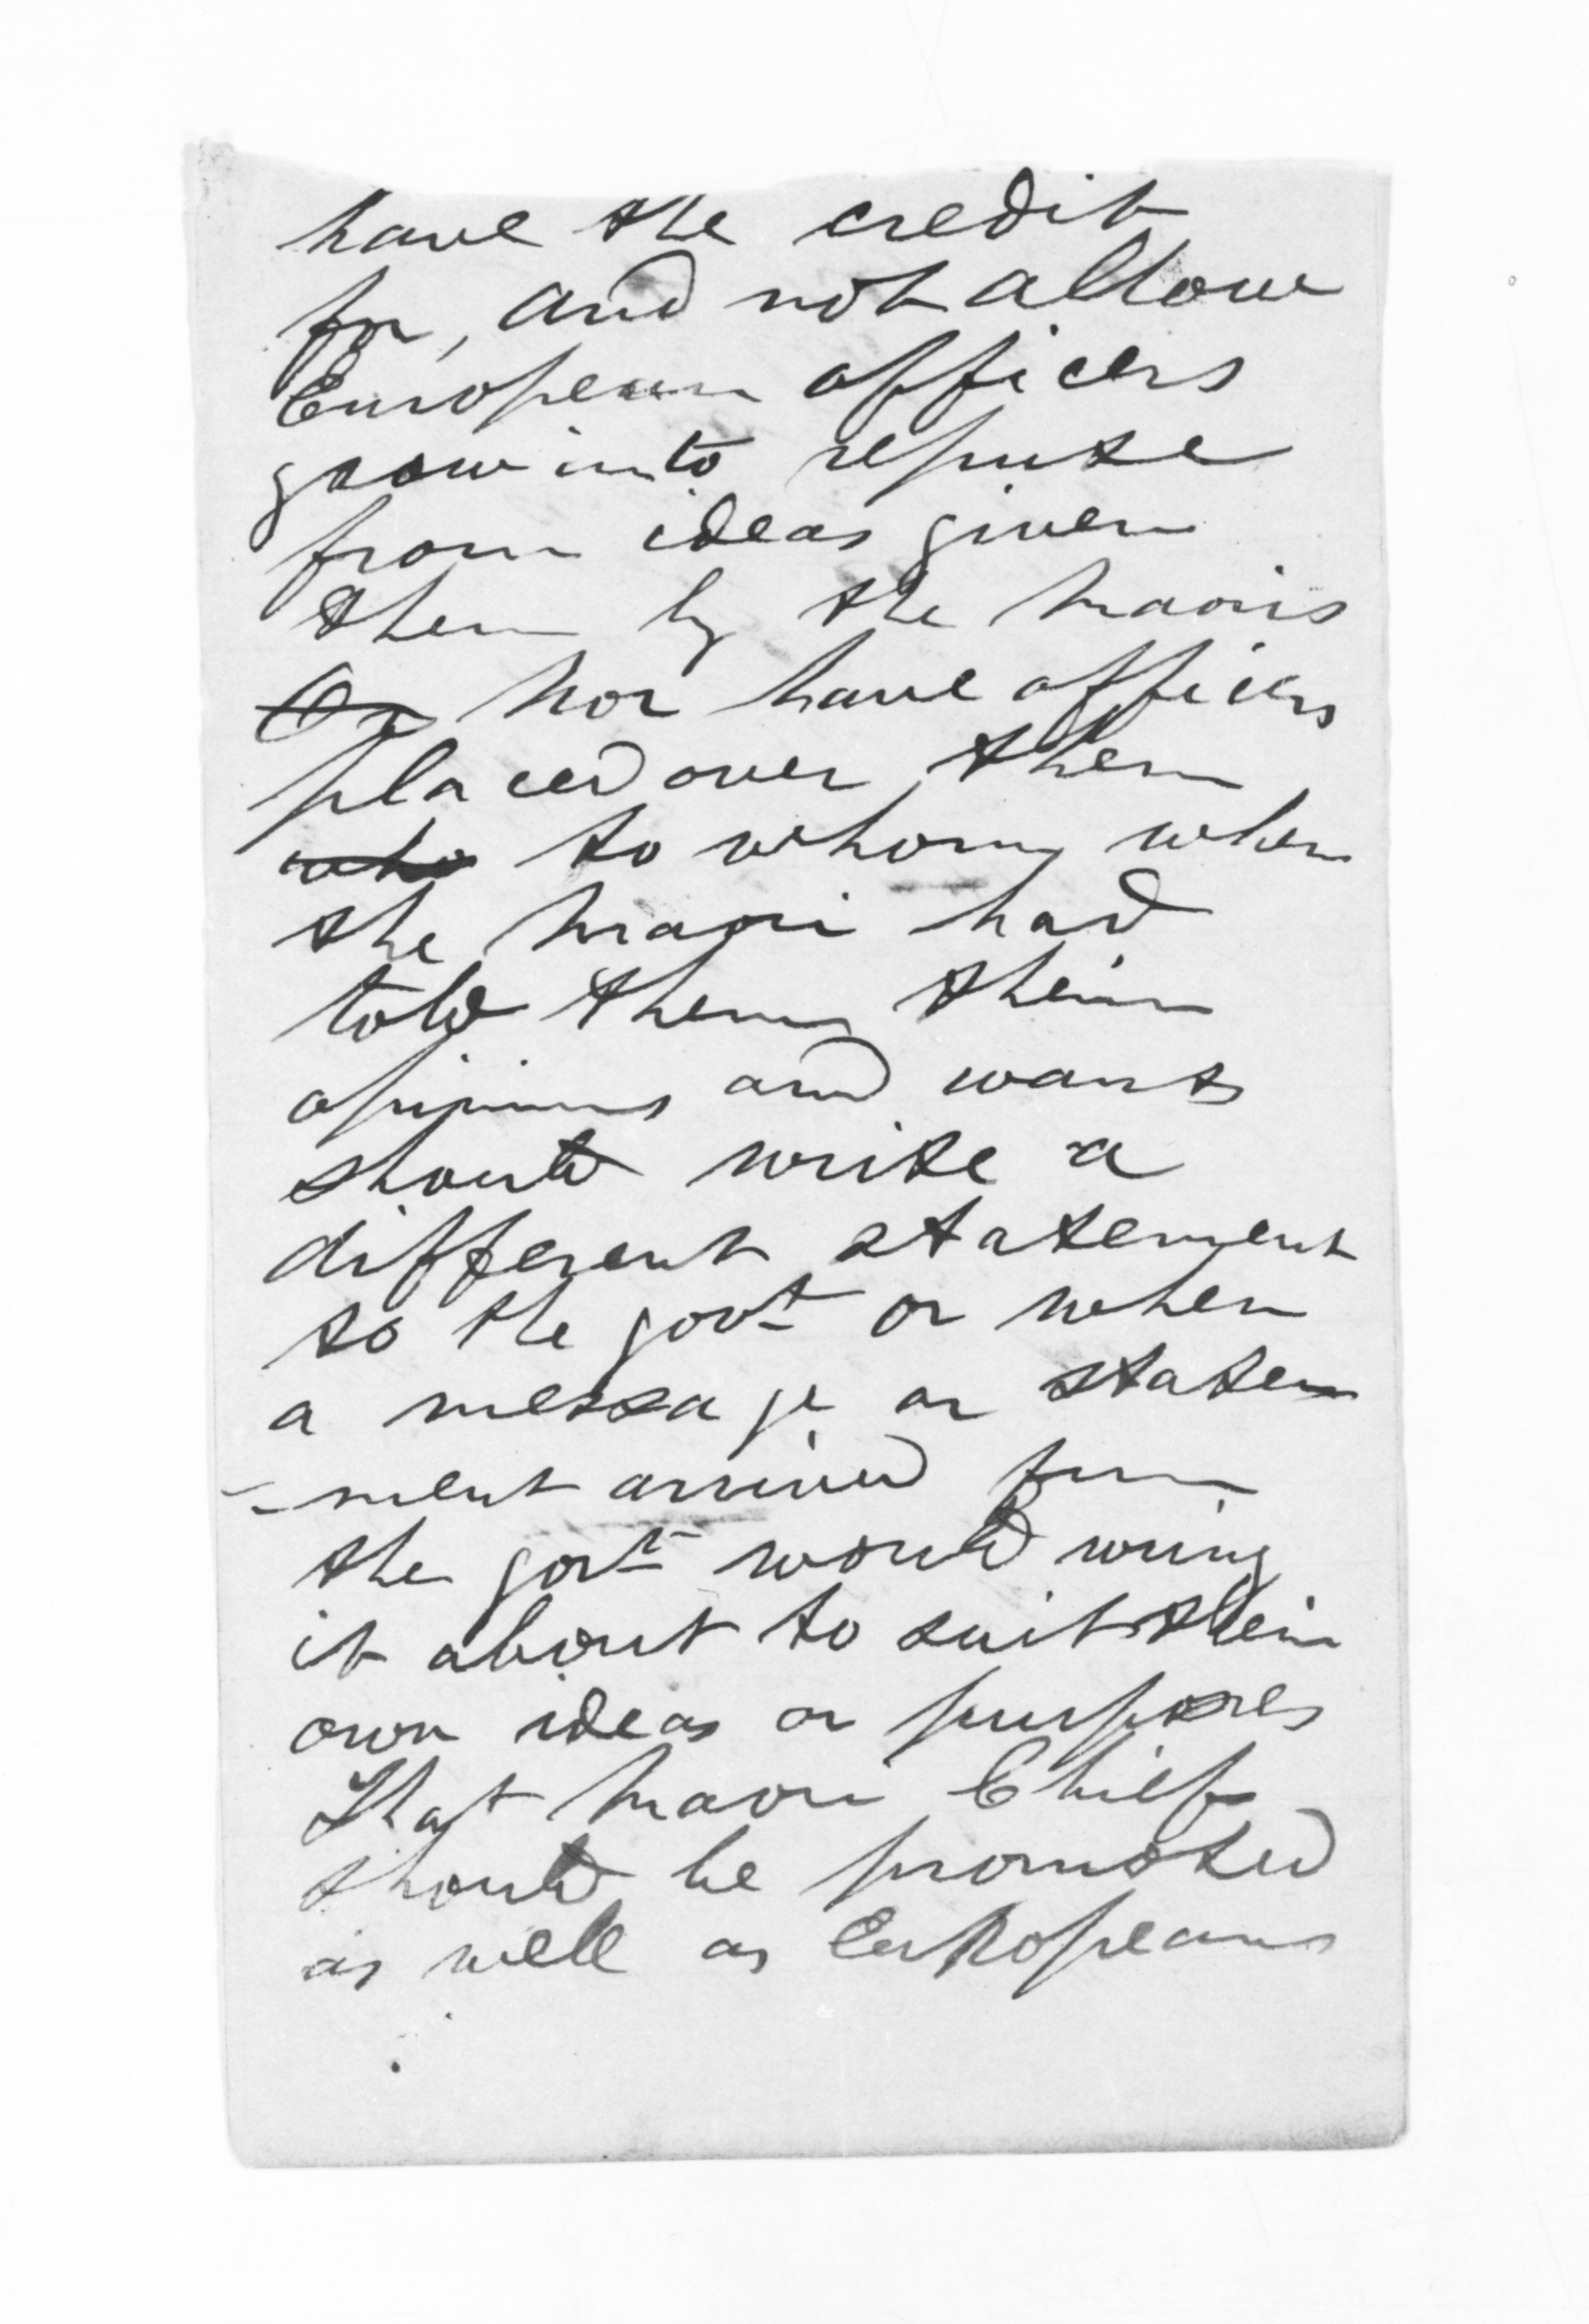 have the credit
for, and not allow
European officers
grow into repute
from ideas given
them by the maoris
Or Nor have officers
placed over them
who to whom when
the maori had
told them their
opinions and wants
should write a
different statement
to the govt or when
a message or state
-ment arrived from
the govt would wring
it about to suit their
own ideas or purposes
That maori Chiefs
should be promoted
as well as Europeans